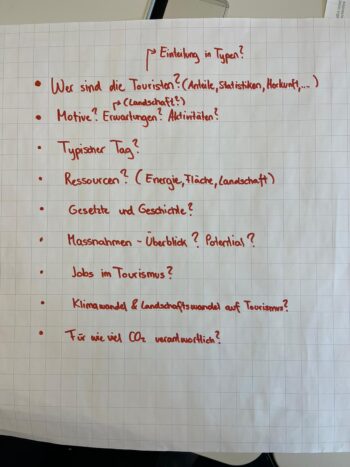 ↱ Einteilung in Typen?
• Wer sind die Touristen? (Anteile, Statistiken, Herkunft, ...)
↱ (Landschaft?)
• Motive? Erwartungen? Aktivitäten?
• Typischer Tag?
• Ressourcen? (Energie, Fläche, Landschaft)
• Gesetzte und Geschichte?
• Massnahmen - Überblick? Potential?
• Jobs im Tourismus?
• Klimawandel & Landschaftswandel auf Tourismus?
• Für wie viel CO₂ verantwortlich?